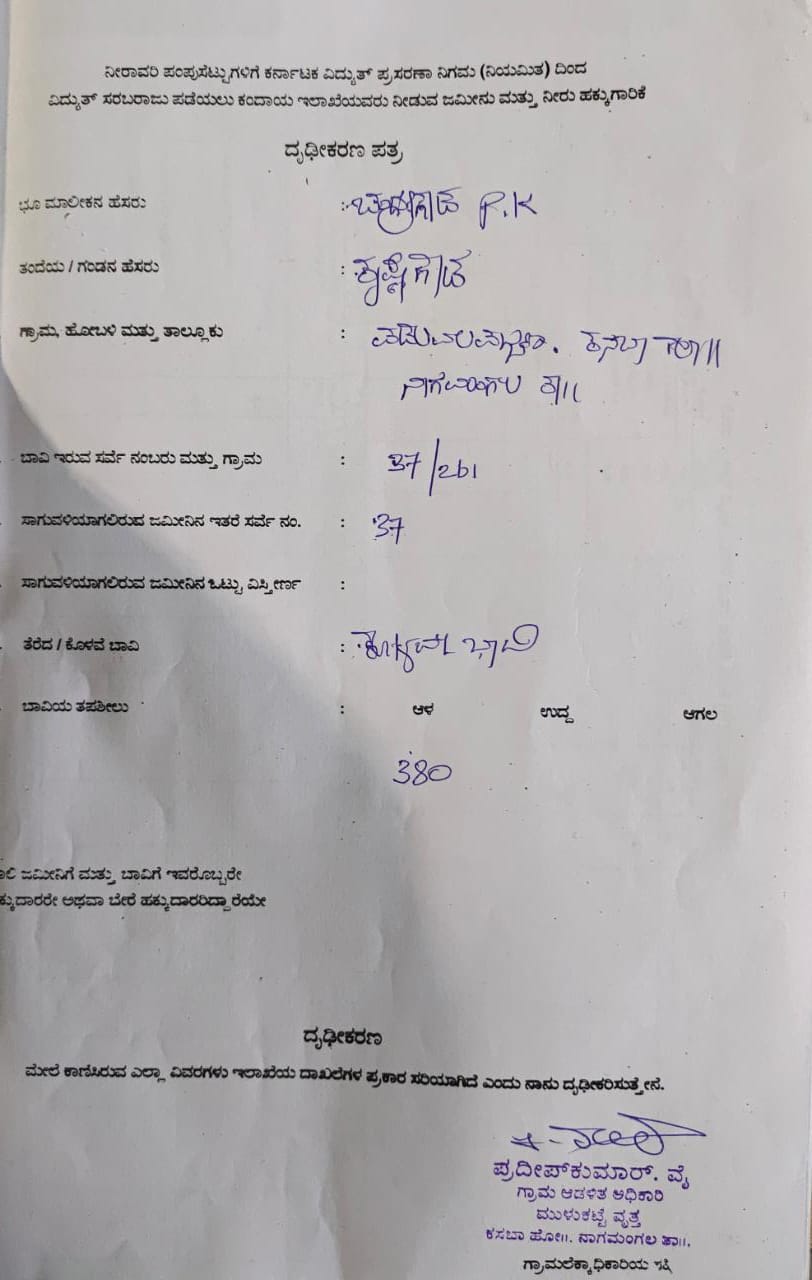 ನೀರಾವರಿ ಪಂಪುಸೆಟ್ಟುಗಳಿಗೆ ಕರ್ನಾಟಕ ವಿದ್ಯುತ್ ಪ್ರಸರಣಾ ನಿಗಮ (ನಿಯಮಿತ) ದಿಂದ
ವಿದ್ಯುತ್ ಸರಬರಾಜು ಪಡೆಯಲು ಕಂದಾಯ ಇಲಾಖೆಯವರು ನೀಡುವ ಜಮೀನು ಮತ್ತು ನೀರು ಹಕ್ಕುಗಾರಿಕೆ
ದೃಢೀಕರಣ ಪತ್ರ
ಭೂ ಮಾಲೀಕನ ಹೆಸರು : P.K
ತಂದೆಯ / ಗಂಡನ ಹೆಸರು : ಕೃಷ್ಣೇಗೌಡ
ಗ್ರಾಮ, ಹೋಬಳಿ ಮತ್ತು ತಾಲ್ಲೂಕು : ಕಸಬಾ ಹೋ||
ನಾಗಮಂಗಲ ತಾ||
ಬಾವಿ ಇರುವ ಸರ್ವೆ ನಂಬರು ಮತ್ತು ಗ್ರಾಮ : 37/2b1
ಸಾಗುವಳಿಯಾಗಲಿರುವ ಜಮೀನಿನ ಇತರೆ ಸರ್ವೆ ನಂ. : 37
ಸಾಗುವಳಿಯಾಗಲಿರುವ ಜಮೀನಿನ ಒಟ್ಟು ವಿಸ್ತೀರ್ಣ :
ತೆರೆದ / ಕೊಳವೆ ಬಾವಿ : ಕೊಳವೆ ಬಾವಿ
ಬಾವಿಯ ತಪಶೀಲು : ಆಳ ಉದ್ದ ಆಗಲ
380
ಜಮೀನಿಗೆ ಮತ್ತು ಬಾವಿಗೆ ಇವರೊಬ್ಬರೇ
ಅಥವಾ ಬೇರೆ ಹಕ್ಕುದಾರರಿದ್ದಾರೆಯೇ
ದೃಢೀಕರಣ
ಮೇಲೆ ಕಾಣಿಸಿರುವ ಎಲ್ಲಾ ವಿವರಗಳು ಇಲಾಖೆಯ ದಾಖಲೆಗಳ ಪ್ರಕಾರ ಸರಿಯಾಗಿದೆ ಎಂದು ನಾನು ದೃಢೀಕರಿಸುತ್ತೇನೆ.
ಪ್ರದೀಪ್‌ಕುಮಾರ್. ವೈ
ಗ್ರಾಮ ಆಡಳಿತ ಅಧಿಕಾರಿ
ಮುಳುಕಟ್ಟೆ ವೃತ್ತ
ಕಸಬಾ ಹೋ||. ನಾಗಮಂಗಲ ತಾ||.
ಗ್ರಾಮಲೆಕ್ಕಾಧಿಕಾರಿಯ